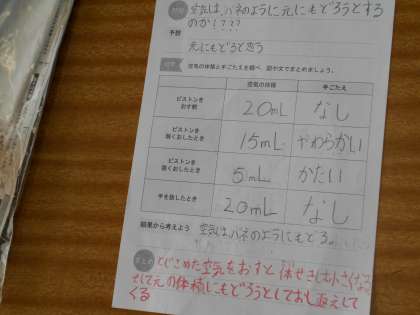 空気は、バネのように元にもどろうとする
のか????
予想
元にもどると思う
空気の体積と手ごたえを調べ、図や文でまとめましょう。
空気の体積 手ごたえ
ピストンを
おす前 20mL なし
ピストンを
弱くおしたとき 15mL やわらかい
ピストンを
強くおしたとき 5mL かたい
手を放したとき 20mL なし
結果から考えよう 空気は、バネのようにもどる。
まとめ とじこめた空気をおすと体せきは小さくなる
そして元の体積にもどろうとしておし返えして
くる